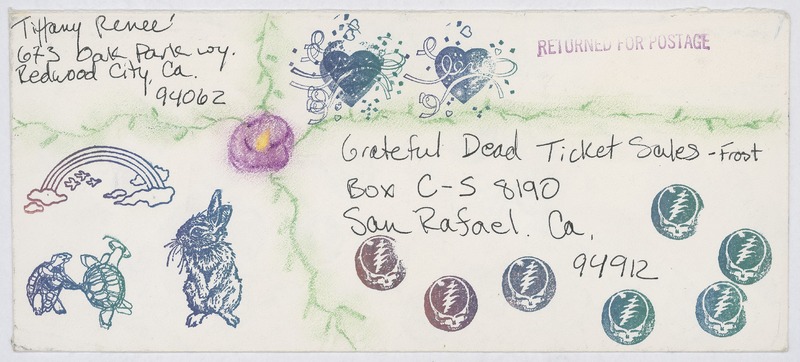 Tiffany Reneé
673 Oak Park wy.
Redwood City, Ca.
94062
RETURNED FOR POSTAGE
Love
Grateful Dead Ticket Sales - Frost
Box C-S 8190
San Rafael. Ca,
94912